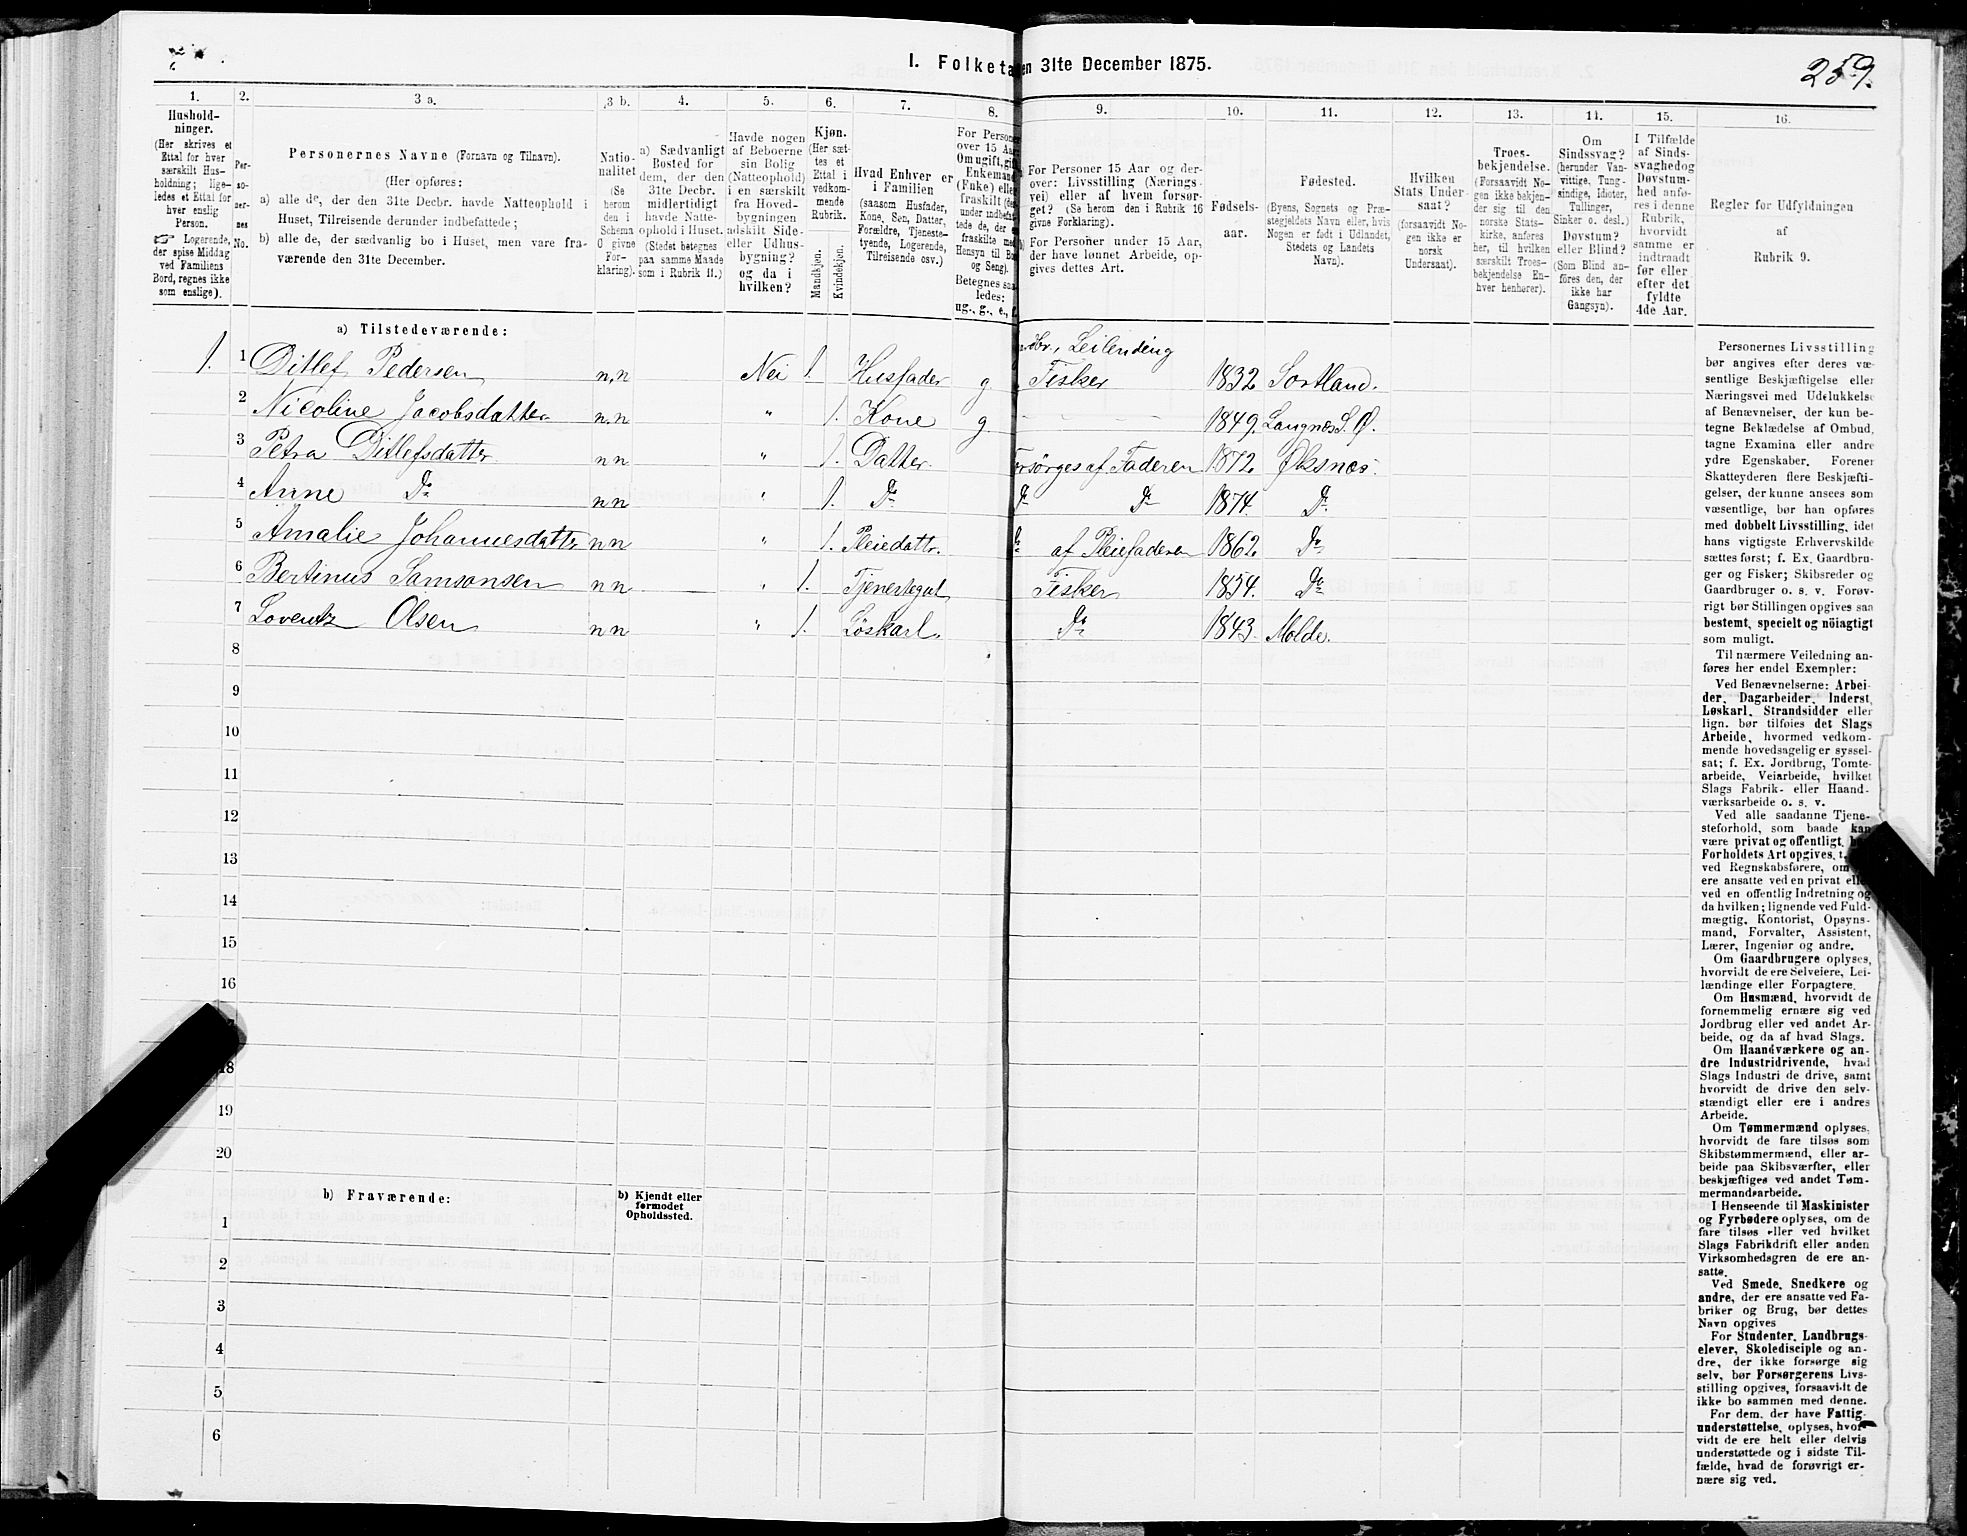 I. Folketa en 31te December 1875.
259.
1.
Hushold-
ninger.
(Her skrives et
Ettal for hver
særskilt Hus-
holdning; lige-
ledes et Ettal for
hver enslig
Person.
☞ Logerende,
der spise Middag
ved Familiens
Bord, regnes ikke
som enslige).
2.
Per-
so-
ner-
nes
No.
3 a.
Personernes Navne (Fornavn og Tilnavn).
(Her opføres:
a) alle de, der den 31te Decbr. havde Natteophold i
Huset, Tilreisende derunder indbefattede;
b) alle de, der sædvanlig bo i Huset, men vare fra-
værende den 31te December.
3 b.
Natio-
nalitet
(Se
herom
den i
Schema
O givne
For-
klaring).
4.
a) Sædvanligt
Bosted for
dem, der den
31te Decbr.
midlertidigt
havde Natte-
ophold i Huset.
(Stedet betegnes
paa samme Maade
som i Rubrik 11.)
5.
Havde nogen
af Beboerne
sin Bolig
(Natteophold)
i en særskilt
fra Hoved-
bygningen
adskilt Side-
eller Udhus-
bygning?
og da i
hvilken?
6.
Kjøn.
(Her sæt-
tes et
Ettal i
vedkom-
mende
Rubrik.
Mandkjøn.
Kvindekjøn.
7.
Hvad Enhver er
i Familien
(saasom Husfader,
Kone, Søn, Datter,
Forældre, Tjeneste-
tyende, Logerende,
Tilreisende osv.)
8.
For Person
over 15 Aar
Om ugift, gift
Enkemand
(Enke) eller
fraskilt
under indbefat
tede de, der
fraskilte med
Hensyn til Bo
og Seng).
Betegnes saa
ledes:
ug., g., e., f.
9.
a) For Personer 15 Aar og der-
over: Livsstilling (Nærings-
vei) eller af hvem forsør-
get? (Se herom den i Rubrik 16
givne Forklaring).
b) For Personer under 15 Aar,
der have lønnet Arbeide, op-
gives dettes Art.
10.
Fødsels-
aar.
11.
Fødested.
(Byens, Sognets og Præ-
stegjeldets Navn eller, hvis
Nogen er født i Udlandet,
Stedets og Landets
Navn).
12.
Hvilken
Stats Under-
saat?
(forsaavidt No-
gen ikke er
norsk
Undersaat).
13.
Troes-
bekjendelse.
(Forsaavidt No-
gen ikke bekjen-
der sig til den
norske Stats-
kirke, anføres
her, til hvilken
særskilt Troes-
bekjendelse En-
hver henhører).
14.
Om
Sindssvag?
(herunder Van-
vittige, Tung-
sindige, Idioter,
Tullinger,
Sinker o. desl.)
Døvstum?
eller Blind?
(Som Blind an-
føres den, der
ikke har
Gangsyn).
15.
I Tilfælde
af Sinds-
svaghed og
Døvstum-
hed anfø-
res i denne
Rubrik,
hvorvidt
samme er
indtraadt
før eller
efter det
fyldte
4de Aar.
16.
Regler for Udfyldningen
af
Rubrik 9.
a) Tilstedeværende:
dbr, Leilending
1. 1 Ditlef Pedersen n,n Nei 1. Husfader g Fisker 1832 Sortland.
2 Nicoline Jacobsdatter n,n " 1. Kone g 1849. Langnes S. Ø.
3 Petra Ditlefsdatter nn " 1. Datter. Forsörges af Faderen 1872. Øksnes.
4 Anne Do nn " 1. Do Do Do 1874. Do
5 Amalie Johannesdatter nn " 1. Pleiedattr. Do af Pleiefaderen 1862. Do
6 Bertinus Samsonsen nn " 1. Tjenestegut Fisker 1854. Do
7 Lorentz Olsen nn " 1. Løskarl. Do 1843. Molde.
8
9
10
11
12
13
14
15
16
18
19
20
b) Fraværende:
b) Kjendt eller
formodet
Opholdssted.
1
2
3
4
5
6
Personernes Livsstilling
bør angives efter deres væ-
sentlige Beskjæftigelse eller
Næringsvei med Udelukkelse
af Benævnelser, der kun be-
tegne Beklædelse af Ombud,
tagne Examina eller andre
ydre Egenskaber. Forener
Skatteyderen flere Beskjæfti-
gelser, der kunne ansees som
væsentlige, bør han opføres
med dobbelt Livsstilling, idet
hans vigtigste Erhvervskilde
sættes først; f. Ex. Gaardbru-
ger og Fisker; Skibsreder og
Gaardbruger o. s. v. Forøv-
rigt bør Stillingen opgives saa
bestemt, specielt og nöiagtigt
som muligt.
Til nærmere Veiledning an-
føres her endel Exempler:
Ved Benævnelserne: Arbei-
der, Dagarbeider, Inderst,
Løskarl, Strandsidder eller
lign. bør tilføies det Slags
Arbeide, hvormed vedkom-
mende hovedsagelig er syssel-
sat; f. Ex. Jordbrug, Tomte-
arbeide, Veiarbeide, hvilket
Slags Fabrik- eller Haand-
værksarbeide o. s. v.
Ved alle saadanne Tjene-
steforhold, som baade kan
være privat og offentligt,
Forholdets Art opgives,
ved Regnskabsførere, om
ere ansatte ved en privat
ved en offentlig Indretning og
da hvilken; lignende ved Fuld-
mægtig, Kontorist, Opsyns-
mand, Forvalter, Assistent,
Lærer, Ingeniør og andre.
Om Gaardbrugere oplyses,
hvorvidt de ere Selveiere, Lei-
lændinge eller Forpagtere.
Om Husmænd, hvorvidt de
fornemmelig ernære sig ved
Jordbrug eller ved andet Ar-
beide, og da af hvad Slags.
Om Haandværkere og an-
dre Industridrivende, hvad
Slags Industri de drive, samt
hvorvidt de drive den selv-
stændigt eller ere i andres
Arbeide.
Om Tømmermænd oplyses,
hvorvidt de fare tilsøs som
Skibstømmermænd, eller ar-
beide paa Skibsværfter, eller
beskjæftiges ved andet Tøm-
mermandsarbeide.
I Henseende til Maskinister
og Fyrbødere oplyses, om de
fare tilsøs eller ved hvilket
Slags Fabrikdrift eller anden
Virksomhedsgren de ere an-
satte.
Ved Smede, Snedkere og
andre, der ere ansatte ved Fa-
briker og Brug, bør dettes
Navn opgives
For Studenter, Landbrugs-
elever, Skoledisciple og an-
dre, der ikke forsørge sig
selv, bør Forsørgerens Livs-
stilling opgives, forsaavidt de
ikke bo sammen med denne.
For dem, der have Fattig-
understøttelse, oplyses, hvor-
vidt de ere helt eller delvis
understøttede og i sidste Til-
fælde, hvad de forøvrigt er-
nære sig ved.